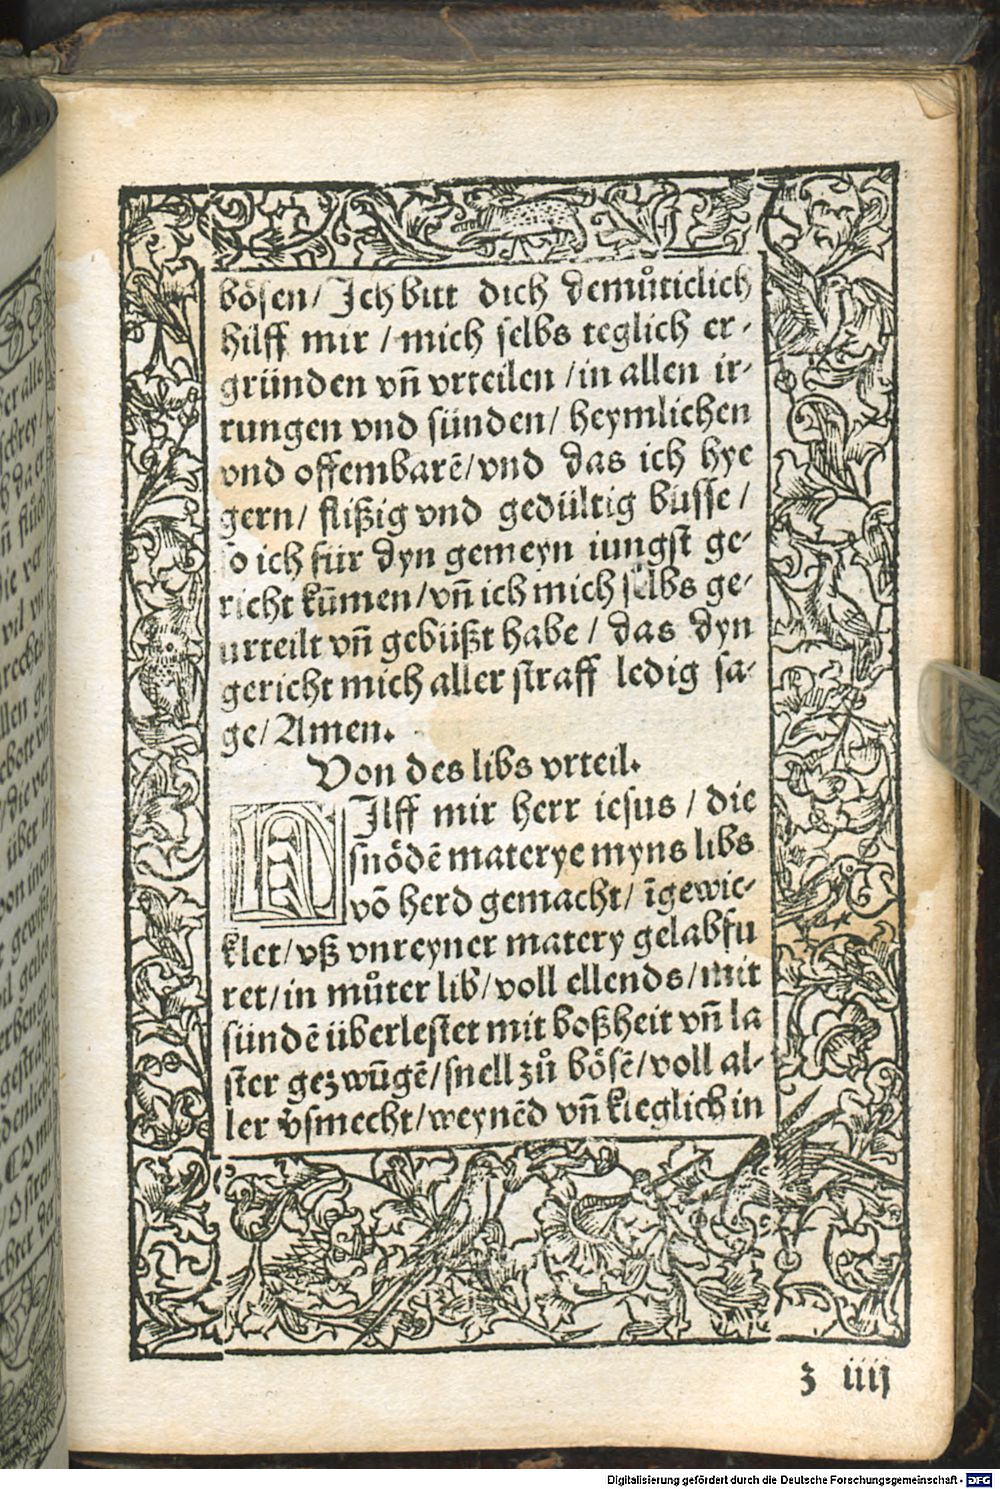 bösen/ Ich bitt dich demůticlich
hilff mir / mich selbs teglich er-
gründen vñ vrteilen /in allen ir-
rungen vnd sünden/ heymlichen
vnd offembarē/vnd das ich hye
gern/ flißig vnd gedültig büsse /
so ich für dyn gemeyn iungst ge-
richt kūmen/vñ ich mich selbs ge-
urteilt vñ gebüßt habe / das dyn
gericht mich aller straff ledig sa-
ge/Amen.
Von des libs vrteil.
HIlff mir herr iesus / die
snödē materye myns libs
vō herd gemacht/ īgewic-
klet/vß vnreyner matery gelabfu
ret/in můter lib/voll ellends/mit
sündē überlestet mit boßheit vñ la
ster gezwūgē/snell zů bösē/voll al-
ler v̓smecht/weynēd vñ kleglich in
z iiij
Digitalisierung gefördert durch die Deutsche Forschungsgemeinschaft - DFG